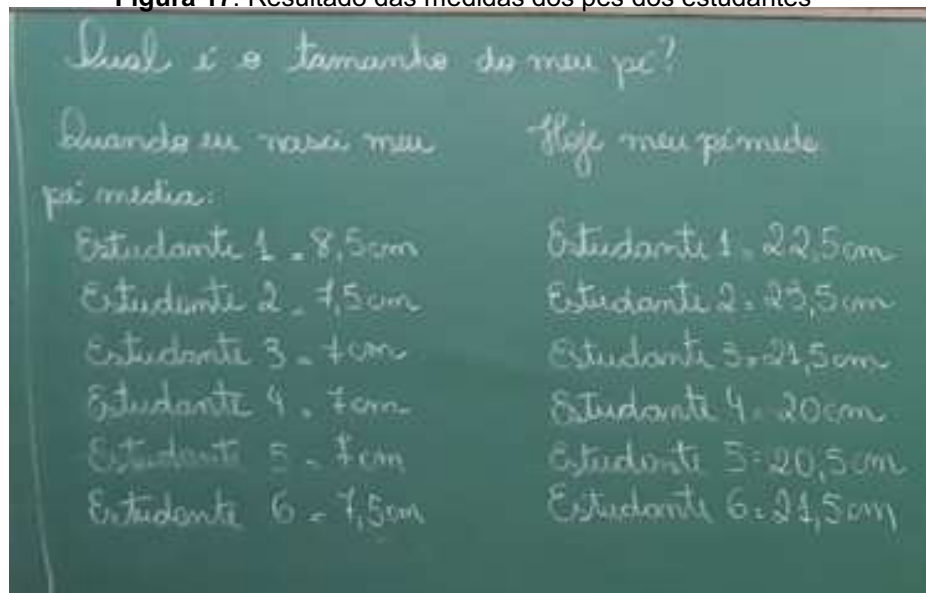 Figura 17: Resultado das medidas dos pés dos estudantes
Qual é o tamanho do meu pé?
Quando eu nasci meu
pé media:
Estudante 1 = 8,5cm
Estudante 2 = 7,5cm
Estudante 3 = 7cm
Estudante 4 = 7cm
Estudante 5 = 7cm
Estudante 6 = 7,5cm
Hoje meu pé mede
Estudante 1 = 22,5cm
Estudante 2 = 23,5cm
Estudante 3 = 21,5cm
Estudante 4 = 20cm
Estudante 5 = 20,5cm
Estudante 6 = 21,5cm